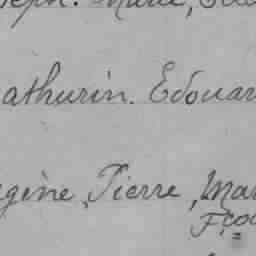 seph. Marie,
athurin. Edouar
gène, Pierre, Mar
Fço